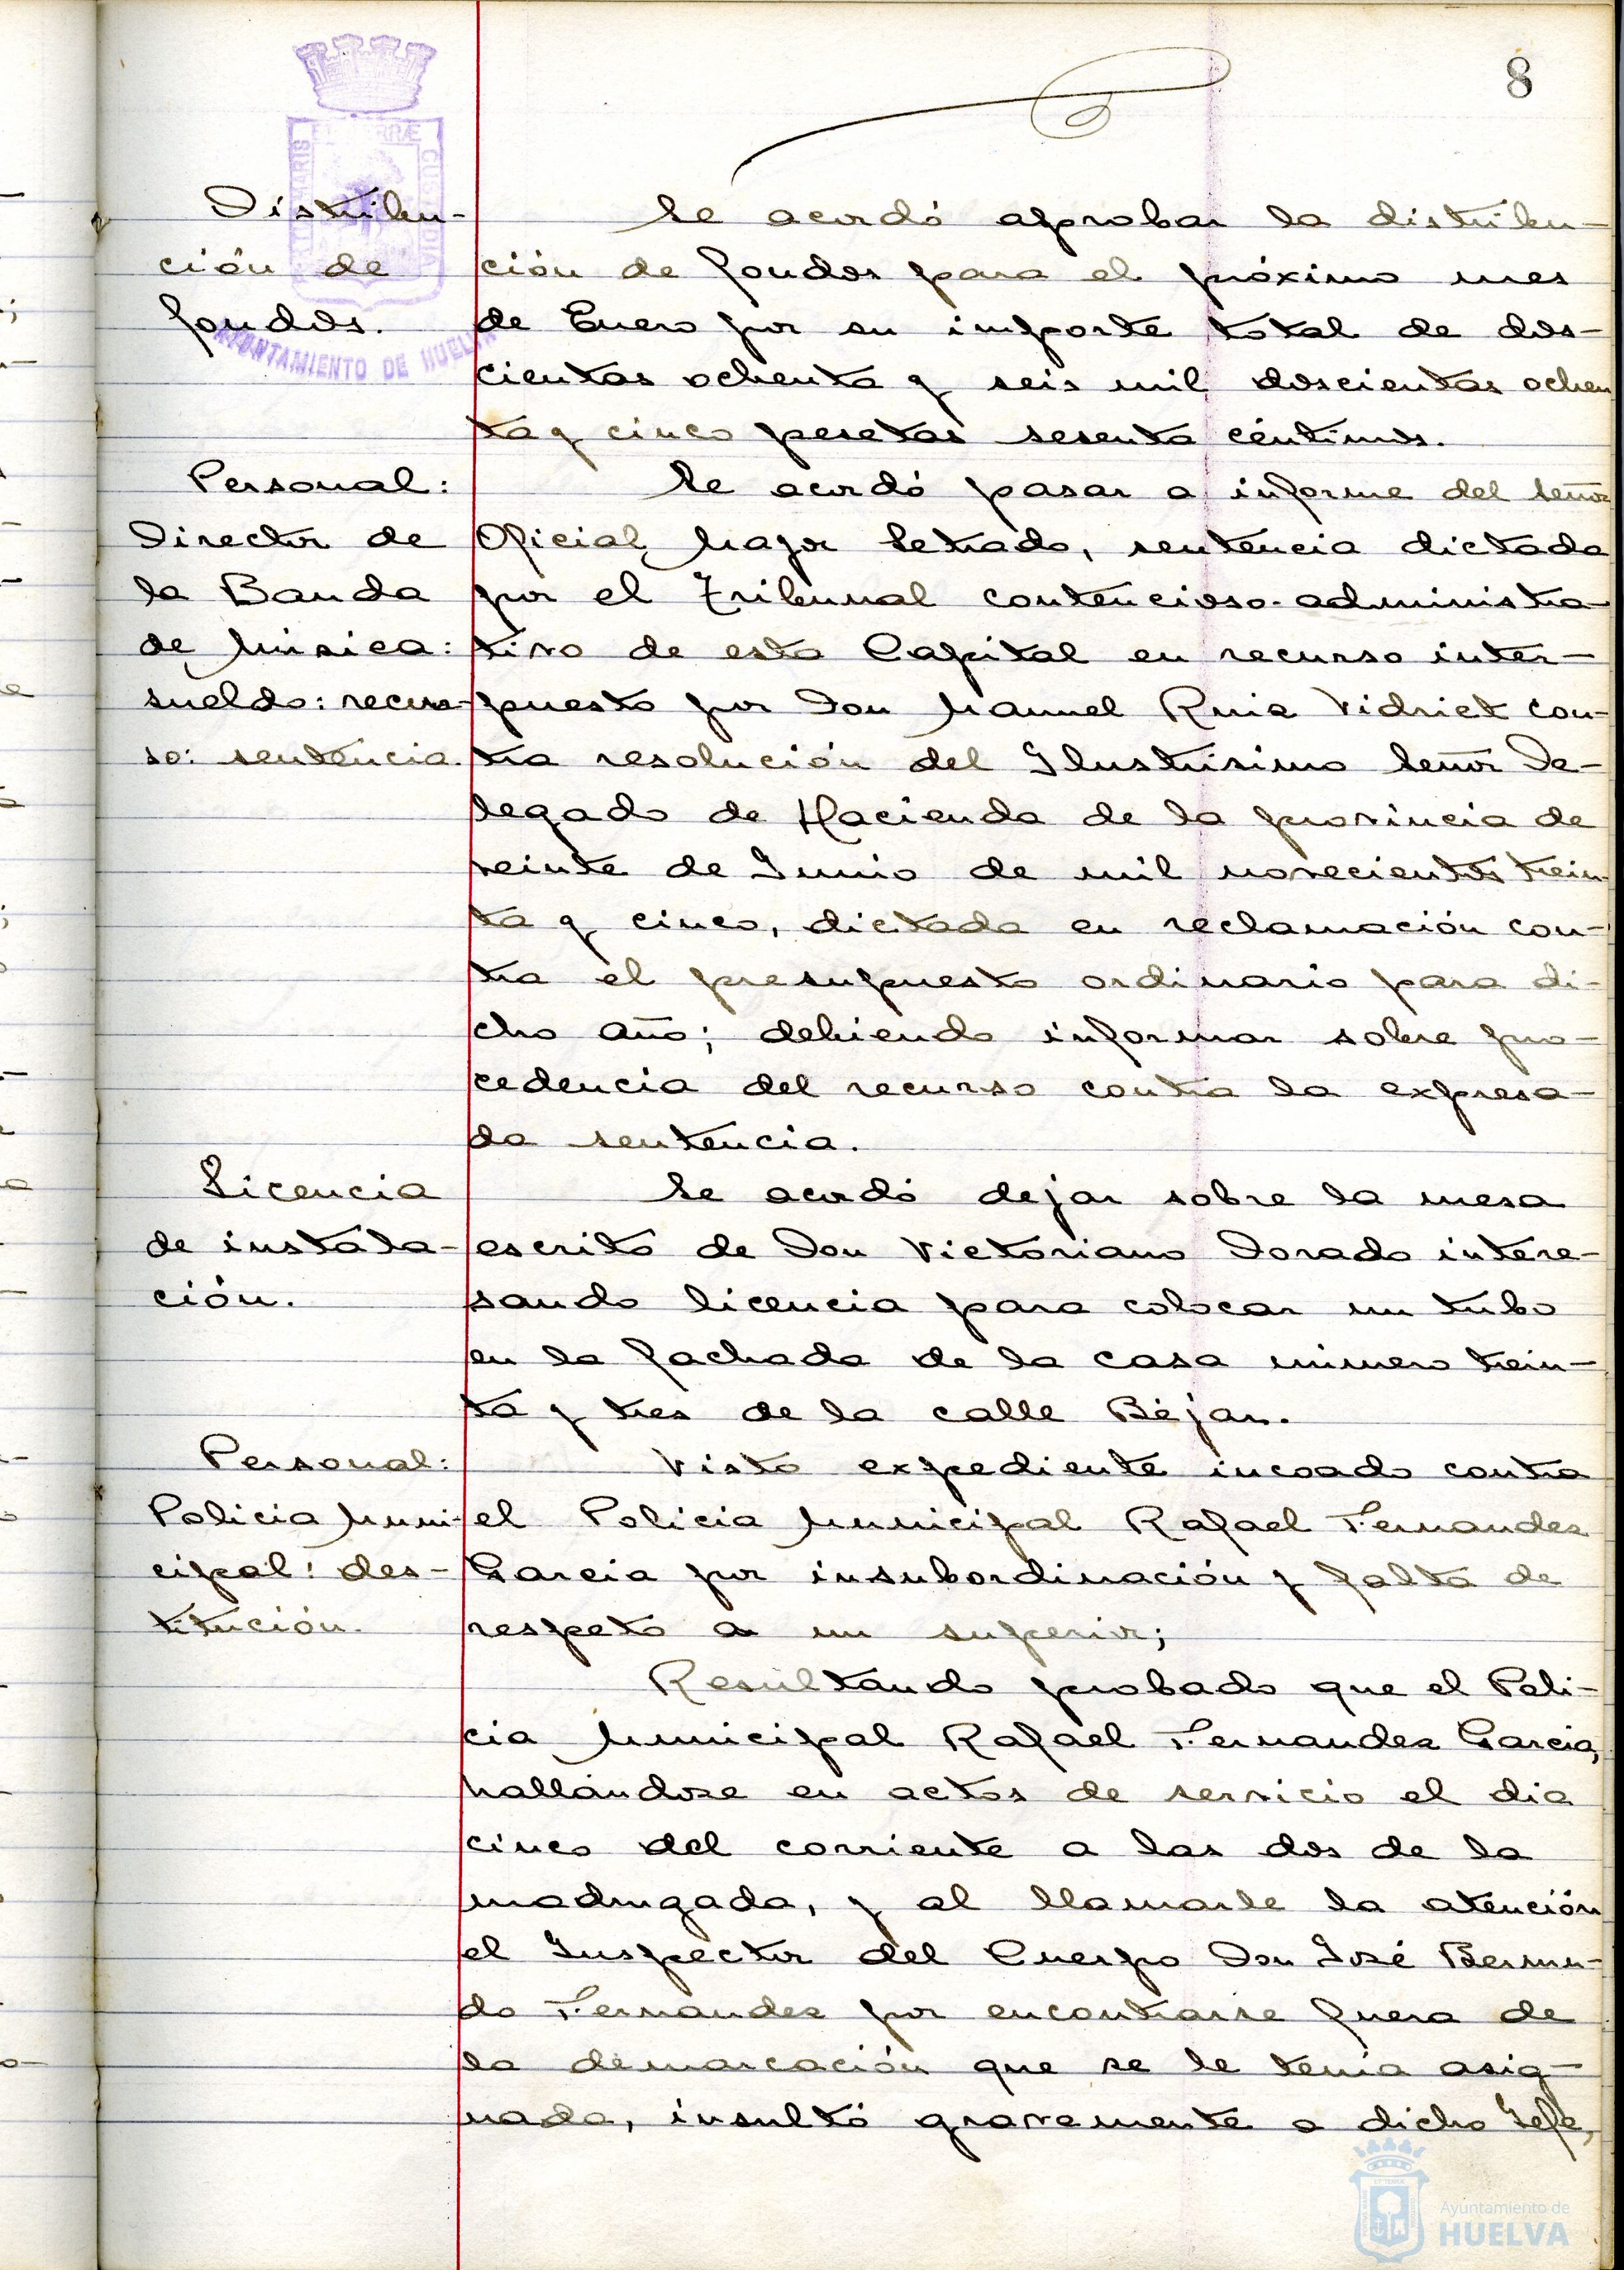 8
Distribu-
ción de
fondos.
Se acordó aprobar la distribu-
ción de fondos para el próximo mes
de Enero por su importe total de dos-
cientas ochenta y seis mil doscientas ochen
ta y cinco pesetas sesenta céntimos.
Personal:
Director de
la Banda
de Música:
sueldo: recur-
so: sentencia.
Se acordó pasar a informe del Señor
Oficial Mayor Letrado, sentencia dictada
por el Tribunal contencioso-administra-
tivo de esta Capital en recurso inter-
puesto por Don Manuel Ruiz Vidriet con-
tra resolución del Ilustrísimo Señor De-
legado de Hacienda de la provincia de
veinte de Junio de mil novecientos trein-
ta y cinco, dictada en reclamación con-
tra el presupuesto ordinario para di-
cho año; debiendo informar sobre pro-
cedencia del recurso contra la expresa-
da sentencia.
Licencia
de instala-
ción.
Se acordó dejar sobre la mesa
escrito de Don Victoriano Dorado intere-
sando licencia para colocar un tubo
en la fachada de la casa número trein-
ta y tres de la calle Béjar.
Personal:
Policia Muni-
cipal: des-
titución.
Visto expediente incoado contra
el Policia Municipal Rafael Fernandez
Garcia por insubordinación y falta de
respeto a un superior;
Resultando probado que el Poli-
cia Municipal Rafael Fernandez Garcia,
hallándose en actos de servicio el dia
cinco del corriente a las dos de la
madrugada, y al llamarle la atención
el Inspector del Cuerpo Don José Bermu-
do Fernandez por encontrarse fuera de
la demarcación que se le tenia asig-
nada, insultó gravemente a dicho Jefe,
AYUNTAMIENTO DE HUELVA
Ayuntamiento de
HUELVA